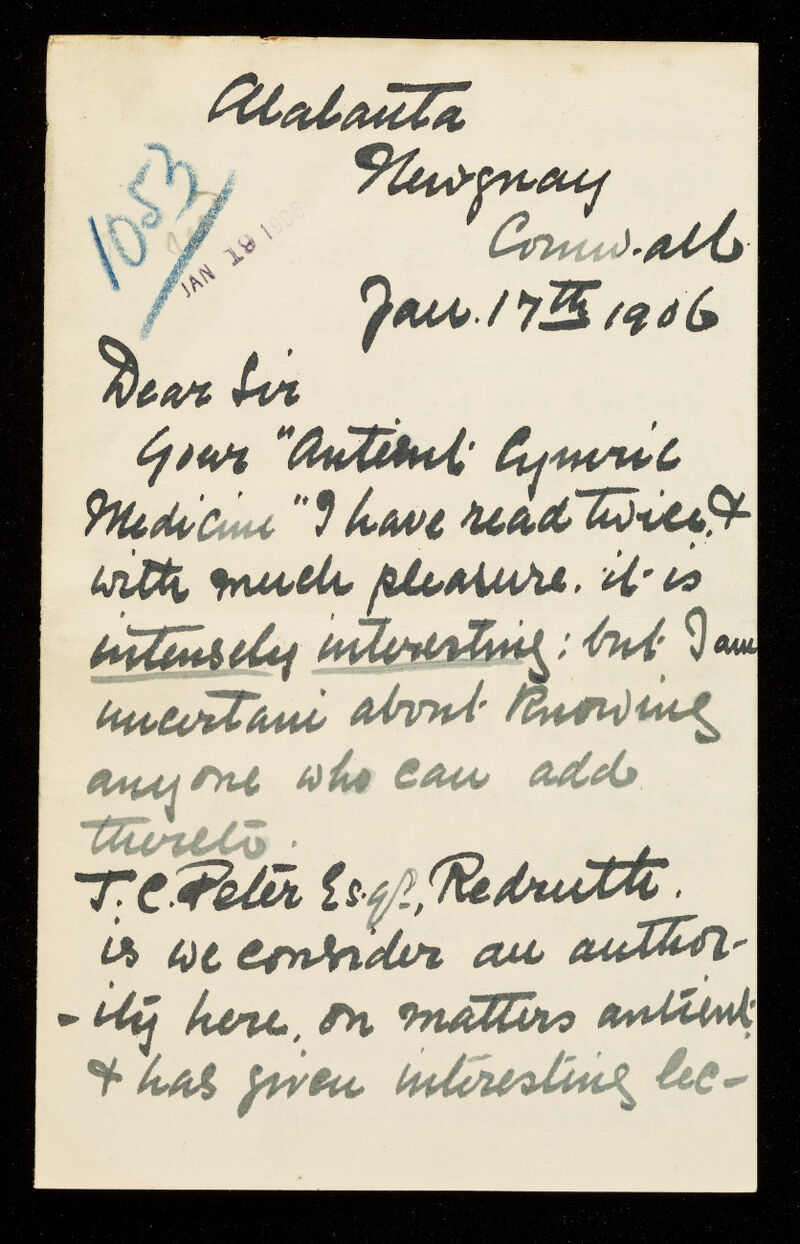 Atalanta
Newquay
Cornwall
1053
JAN 19 1906
Jan. 17th 1906
Dear Sir
Your "Antient Cymric
Medicine" I have read twice, &
with much pleasure. it is
intensely interesting: but I am
uncertain about knowing
anyone who can add
thereto.
T. C. Peter Esqr., Redruth.
is we consider an author-
-ity here, on matters antient
& has given interesting lec-